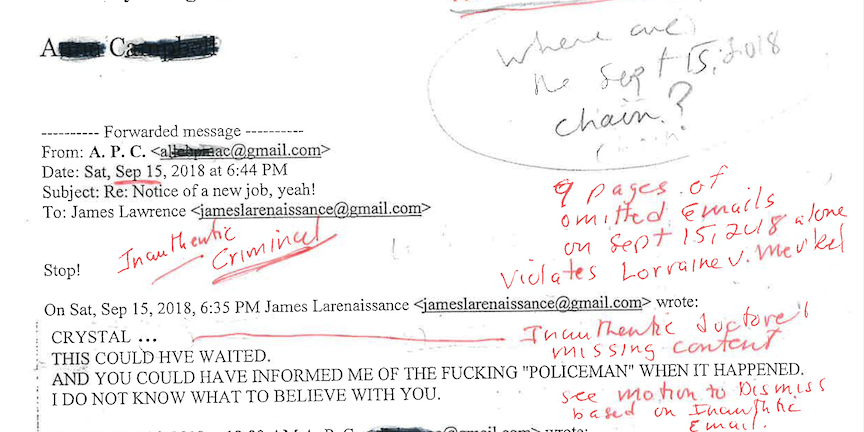 Where are
the Sept 15, 2018
chain?
---------- Forwarded message ----------
From: A. P. C.
Date: Sat, Sep 15, 2018 at 6:44 PM
Subject: Re: Notice of a new job, yeah!
To: James Lawrence <jameslarenaissance@gmail.com>
9 pages of
omitted Emails
on Sept 15, 2018 alone
Violates Lorraine v. Merkel
Inauthentic
Criminal
Stop!
On Sat, Sep 15, 2018, 6:35 PM James Larenaissance <jameslarenaissance@gmail.com> wrote:
CRYSTAL ...
Inauthentic
missing content
THIS COULD HVE WAITED.
AND YOU COULD HAVE INFORMED ME OF THE FUCKING "POLICEMAN" WHEN IT HAPPENED.
I DO NOT KNOW WHAT TO BELIEVE WITH YOU.
see Motion to Dismiss
based on Inauthtic
Email.